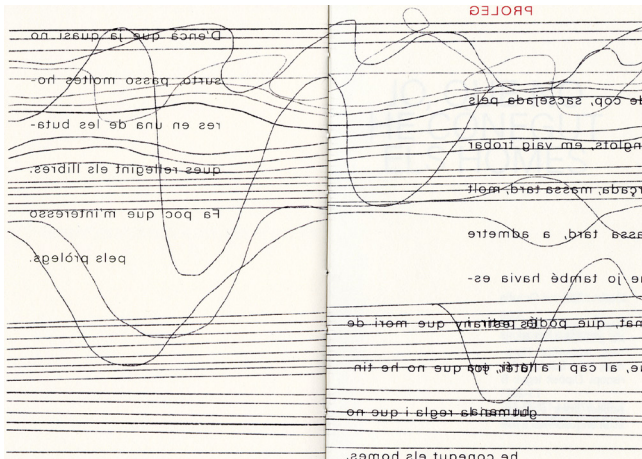 PROLEG
D'ençà que ja quasi no
surto, passo moltes ho-
res en una de les buta-
ques rellegint els llibres.
Fa poc que m'interesso
pels pròlegs.
de cop, sacsejada pels
nglots, em vaig trobar
rçada, massa tard, molt
assa tard, a admetre
ue jo també havia es-
mat, que podia
estrany que mori de
ue, al cap i a la fi, jo
que no he tin
humana
gut mai la regla i que no
he conegut els homes.